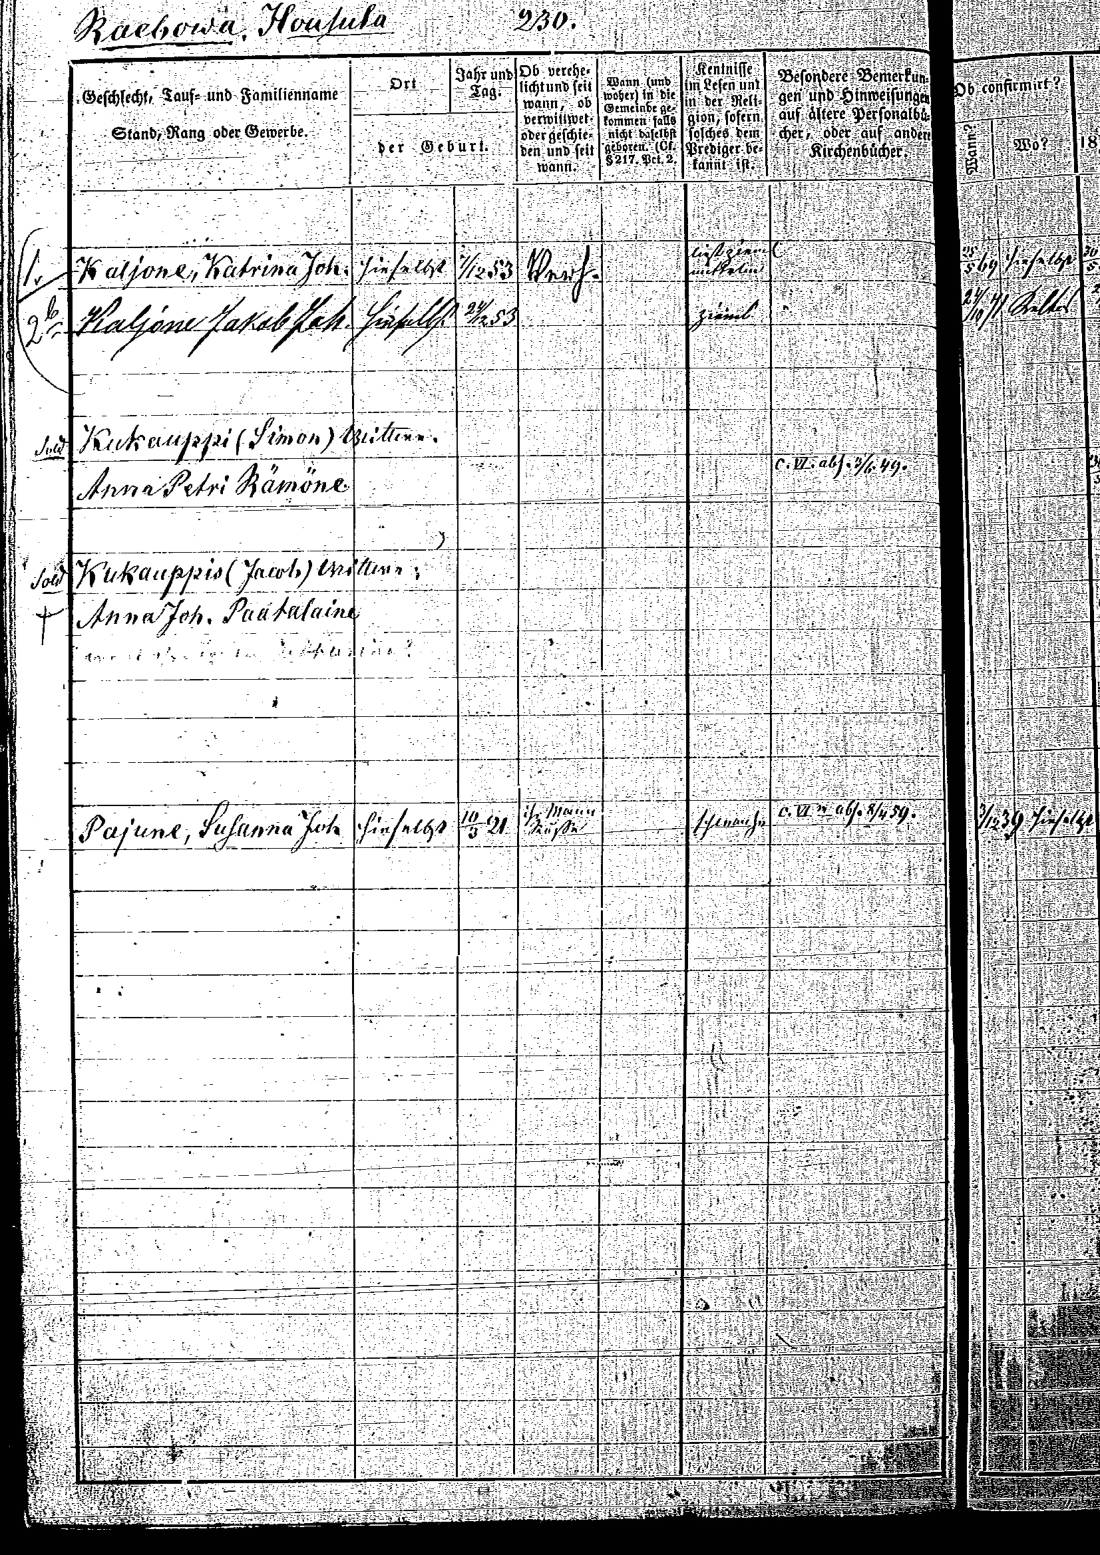 Rachowa, Housula 230.
Geschlecht, Tauf- und Familienname
Stand, Rang oder Gewerbe.
Ort
Jahr und
Tag.
der Geburt.
Ob verehe-
licht und seit
wann, ob
verwittwet
oder geschie-
den und seit
wann.
Wann (und
woher) in die
Gemeinde ge-
kommen falls
nicht daselbst
geboren. (Cf.
§ 217. Pct. 2.
Kentnisse
im Lesen und
in der Reli-
gion, sofern
solches dem
Prediger be-
kannt ist.
Besondere Bemerkun-
gen und Hinweisungen
auf ältere Personalbü-
cher, oder auf andere
Kirchenbücher.
Ob confirmirt?
Wann?
Wo?
18
1. Kaljone, Katrina Joh. hieselbst 7/12 53 Verh. 69 hieselbst
2 Kaljone Jakob Joh. hieselbst 53 ziemL 71
Sold Kukauppi (Simon) Wittwe.
Anna Petri Rämöne c. VI. abs. 49.
Sold Kukauppis (Jacob) Wittwe.
† Anna Joh. Paatalaine
Pajune, Susanna Joh hieselbst 10/3 21 ihr Mann Russe schwach c. VI abs. 8/4 59. 3/12 39 hieselbst